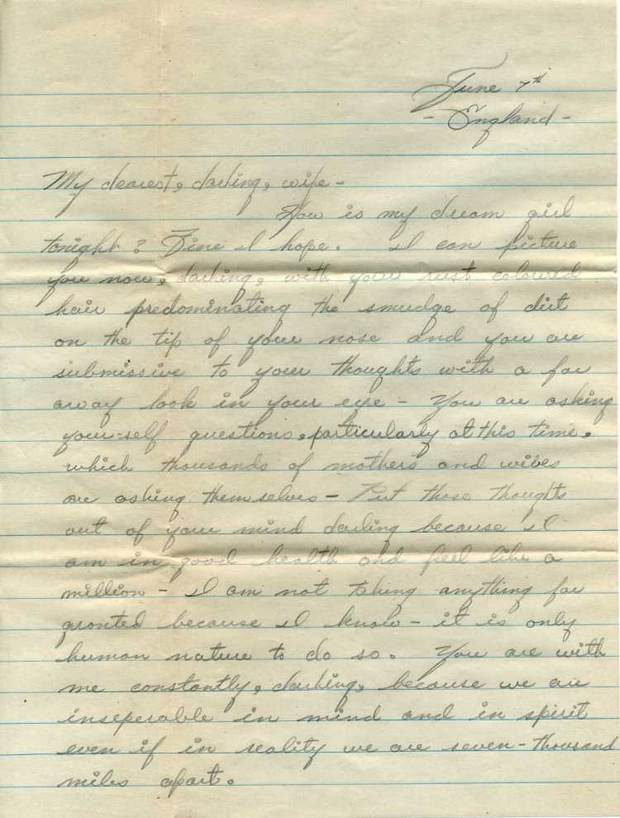 June 7th
- England -
My dearest, darling, wife -
How is my dream girl
tonight? Fine I hope. I can picture
you now, darling, with your rust coloured
hair predominating the smudge of dirt
on the tip of your nose and you are
submissive to your thoughts with a far
away look in your eye - You are asking
your-self questions, particularly at this time,
which thousands of mothers and wives
are asking themselves - Put those thoughts
out of your mind darling because I
am in good health and feel like a
million - I am not taking anything for
granted because I know - it is only
human nature to do so. You are with
me constantly, darling, because we are
inseperable in mind and in spirit
even if in reality we are seven-thousand
miles apart.